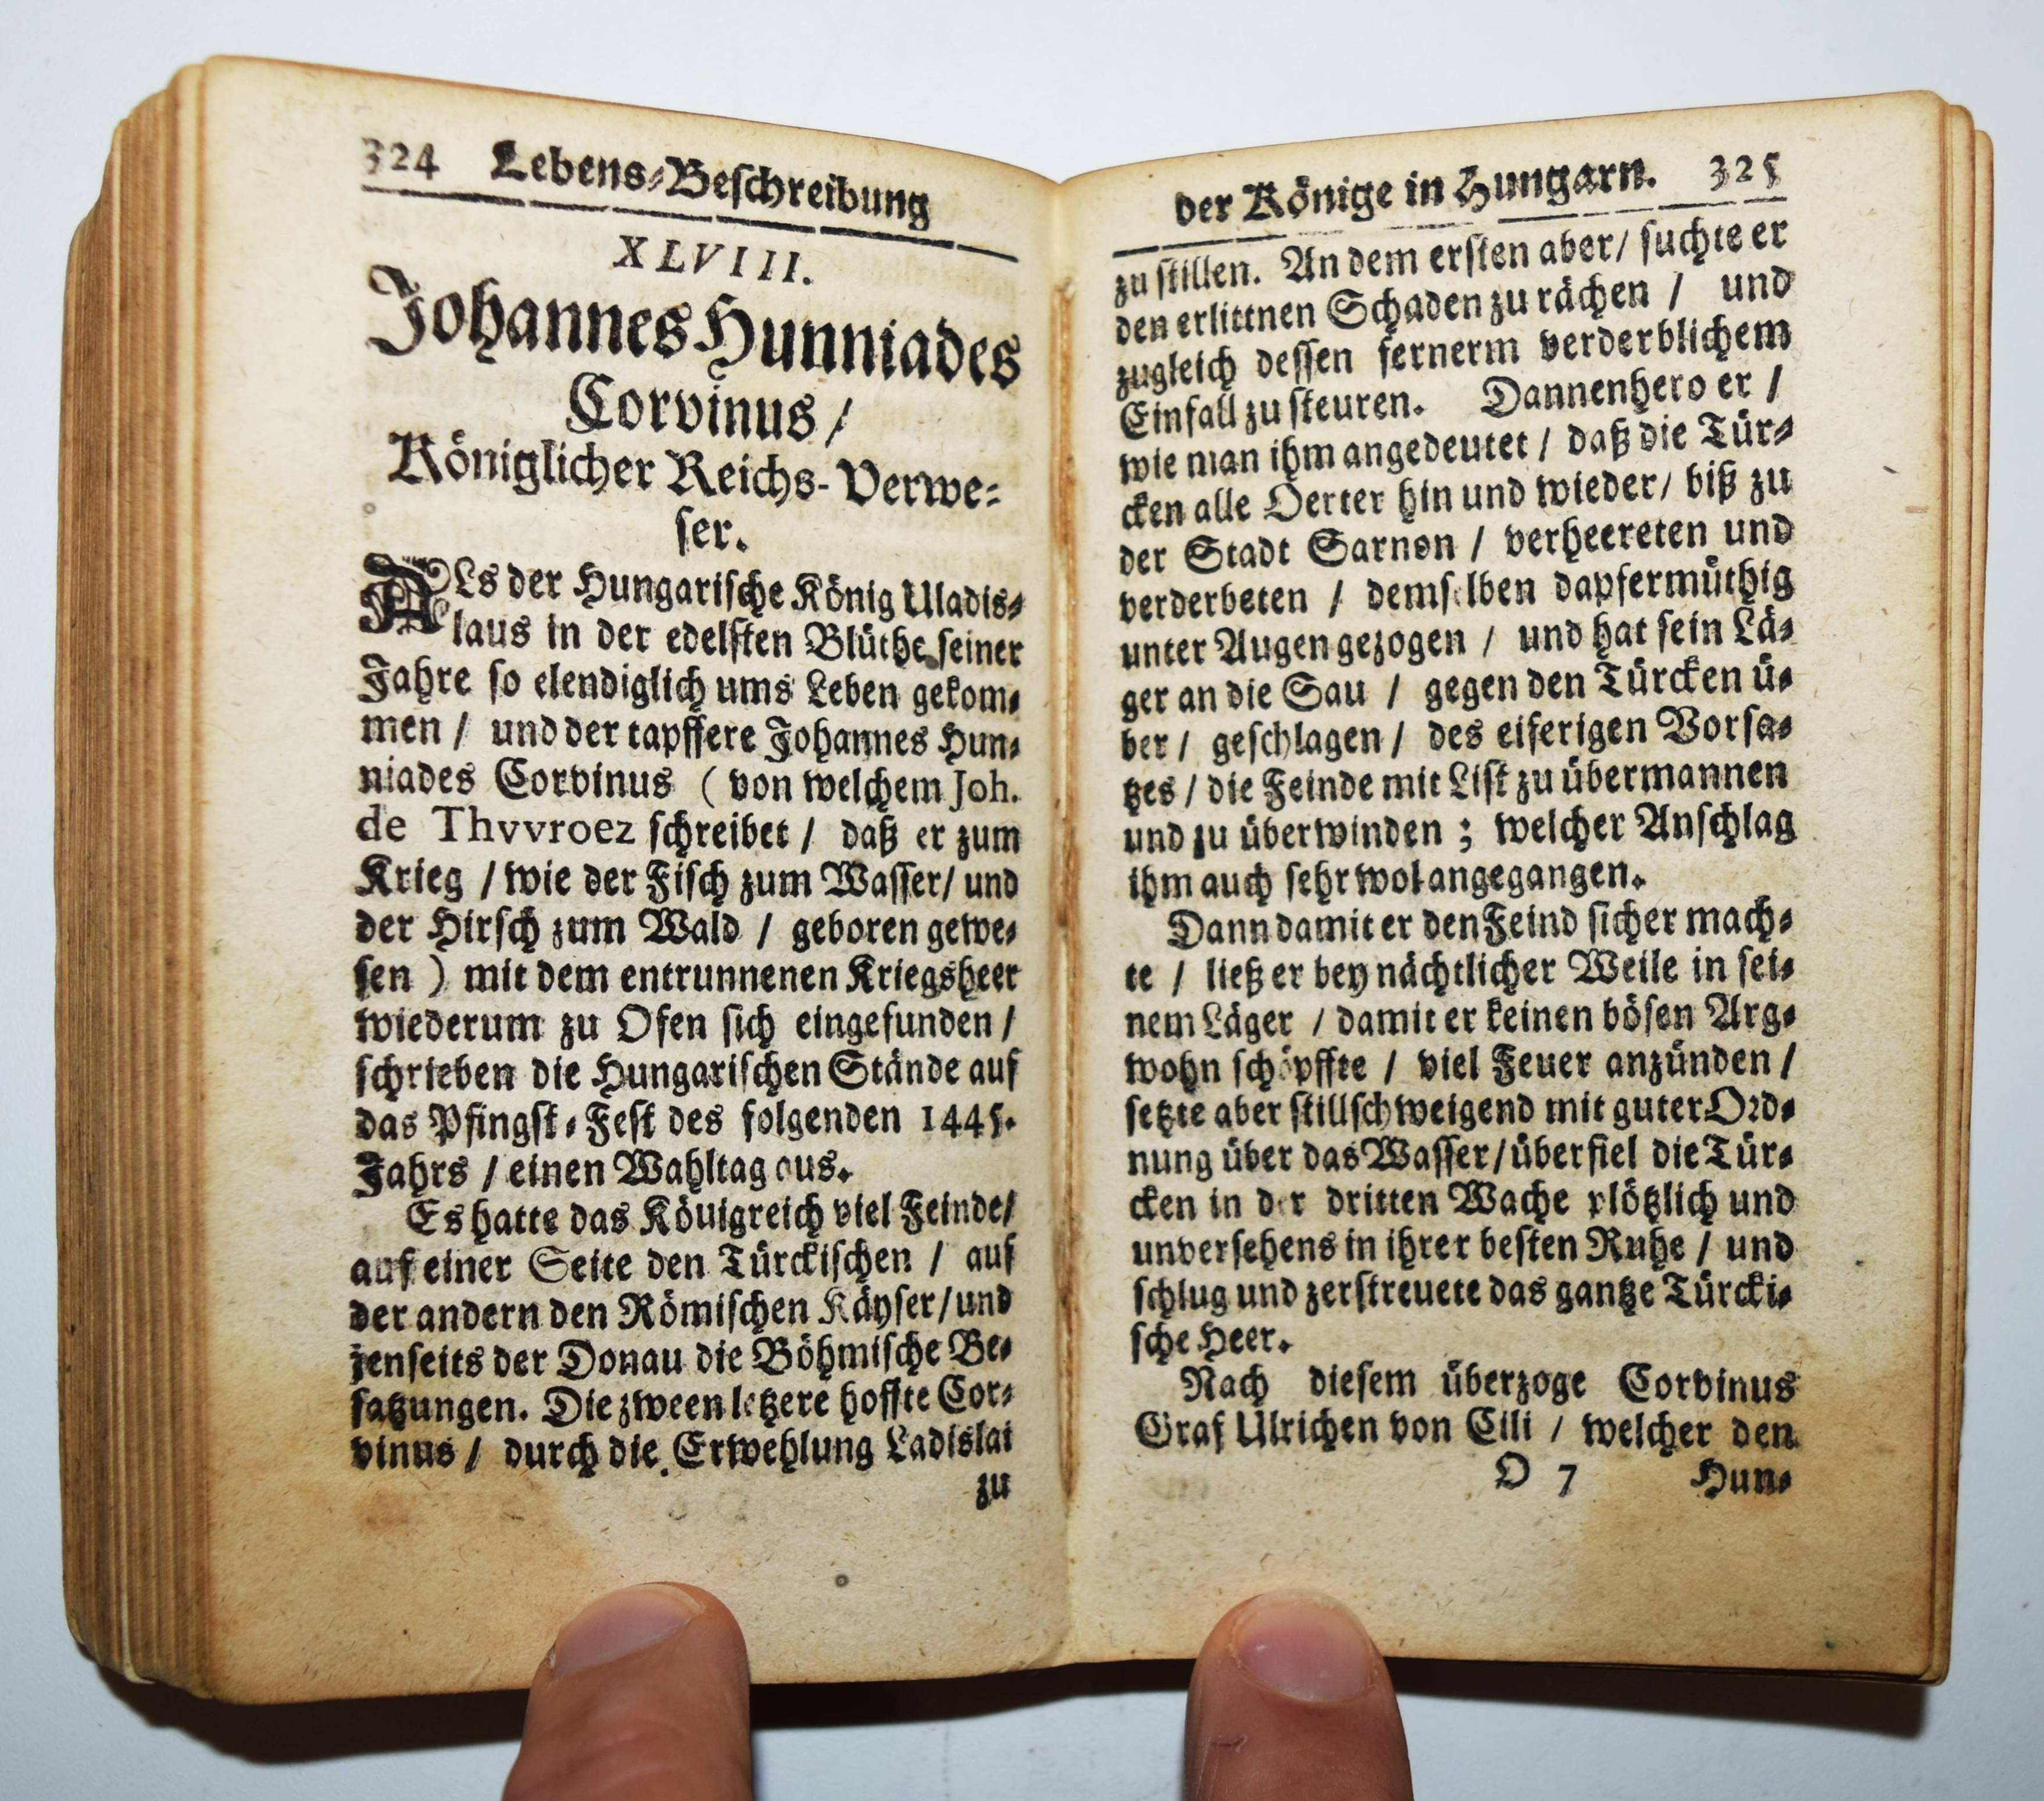 324 Lebens-Beschreibung
XLVIII.
Johannes Hunniades
Corvinus /
Königlicher Reichs-Verwe-
ser.
ALs der Hungarische König Uladis-
laus in der edelsten Blüthe seiner
Jahre so elendiglich ums Leben gekom-
men / und der tapffere Johannes Hun-
niades Corvinus ( von welchem Joh.
de Thvvroez schreibet / daß er zum
Krieg / wie der Fisch zum Wasser / und
der Hirsch zum Wald / geboren gewe-
sen ) mit dem entrunnenen Kriegsheer
wiederum zu Ofen sich eingefunden /
schrieben die Hungarischen Stände auf
das Pfingst-Fest des folgenden 1445.
Jahrs / einen Wahltag aus.
Es hatte das Köuigreich viel Feinde /
auf einer Seite den Türckischen / auf
der andern den Römischen Käyser / und
jenseits der Donau die Böhmische Be-
satzungen. Die zween letzere hoffte Cor-
vinus / durch die Erwehlung Ladislai
zu
der Könige in Hungarn. 325
zu stillen. An dem ersten aber / suchte er
den erlittnen Schaden zu rächen / und
zugleich dessen fernerm verderblichem
Einfall zu steuren. Dannenhero er /
wie man ihm angedeutet / daß die Tür-
cken alle Oerter hin und wieder / biß zu
der Stadt Sarnon / verheereten und
verderbeten / demselben dapfermüthig
unter Augen gezogen / und hat sein Lä-
ger an die Sau / gegen den Türcken ü-
ber / geschlagen / des eiferigen Vorsa-
tzes / die Feinde mit List zu übermannen
und zu überwinden ; welcher Anschlag
ihm auch sehr wol angegangen.
Dann damit er den Feind sicher mach-
te / ließ er bey nächtlicher Weile in sei-
nem Läger / damit er keinen bösen Arg-
wohn schöpffte / viel Feuer anzünden /
setzte aber stillschweigend mit guter Ord-
nung über das Wasser / überfiel die Tür-
cken in der dritten Wache plötzlich und
unversehens in ihrer besten Ruhe / und
schlug und zerstreuete das gantze Türcki-
sche Heer.
Nach diesem überzoge Corvinus
Graf Ulrichen von Cili / welcher den
O 7 Hun-